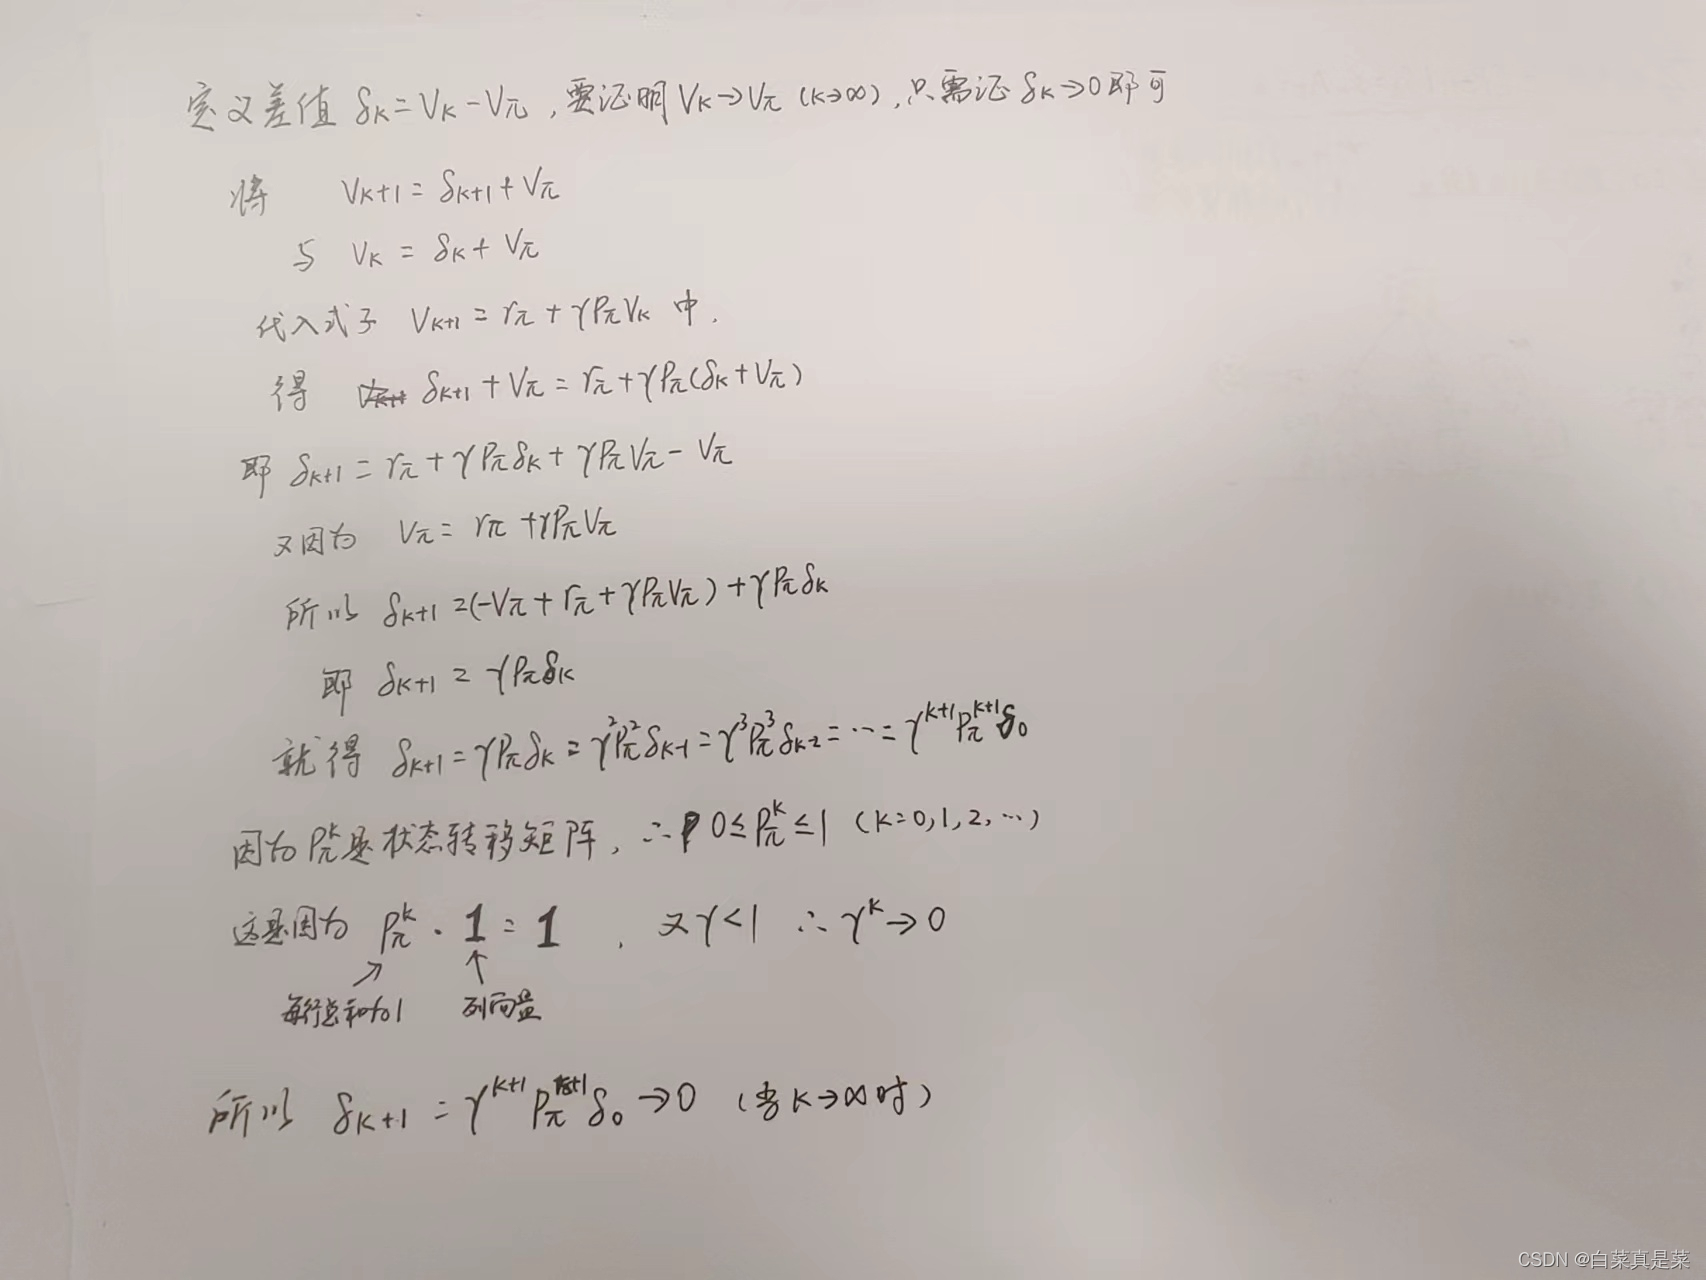 定义差值 δₖ = Vₖ - Vπ , 要证明 Vₖ → Vπ (k→∞) , 只需证 δₖ → 0 即可
将 Vₖ₊₁ = δₖ₊₁ + Vπ
与 Vₖ = δₖ + Vπ
代入式子 Vₖ₊₁ = rπ + γPπVₖ 中 .
得 δₖ₊₁ + Vπ = rπ + γPπ(δₖ + Vπ)
即 δₖ₊₁ = rπ + γPπδₖ + γPπVπ - Vπ
又因为 Vπ = rπ + γPπVπ
所以 δₖ₊₁ = (-Vπ + rπ + γPπVπ) + γPπδₖ
即 δₖ₊₁ = γPπδₖ
就得 δₖ₊₁ = γPπδₖ = γ²Pπ²δₖ₋₁ = γ³Pπ³δₖ₋₂ = ⋯ = γᵏ⁺¹Pπᵏ⁺¹δ₀
因为 Pπᵏ 是状态转移矩阵 , ∴ 0 ≤ Pπᵏ ≤ 1 (k=0,1,2,⋯)
这是因为 Pπᵏ · 1 = 1 , 又 γ<1 ∴ γᵏ → 0
每行总和为1 列向量
所以 δₖ₊₁ = γᵏ⁺¹Pπᵏ⁺¹δ₀ → 0 (当 k→∞ 时)
CSDN @白菜真是菜